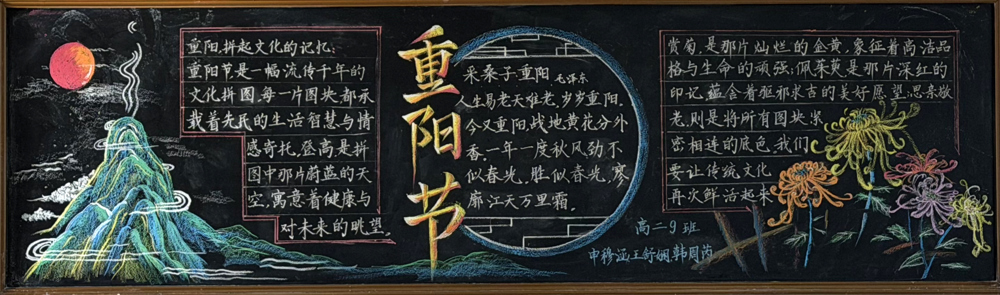 重阳,拼起文化的记忆:
重阳节是一幅流传千年的
文化拼图,每一片图块都承
载着先民的生活智慧与情
感寄托。登高是拼
图中那片蔚蓝的天
空,寓意着健康与
对未来的眺望。
重阳节
采桑子·重阳 毛泽东
人生易老天难老,岁岁重阳。
今又重阳,战地黄花分外
香。一年一度秋风劲,不
似春光。胜似春光,寥
廓江天万里霜。
赏菊,是那片灿烂的金黄,象征着高洁品
格与生命的顽强;佩茱萸是那片深红的
印记,蕴含着驱邪求吉的美好愿望;思亲敬
老,则是将所有图块紧
密相连的底色。我们
要让传统文化
再次鲜活起来
高二9班
申穆涵王舒娴韩周芮